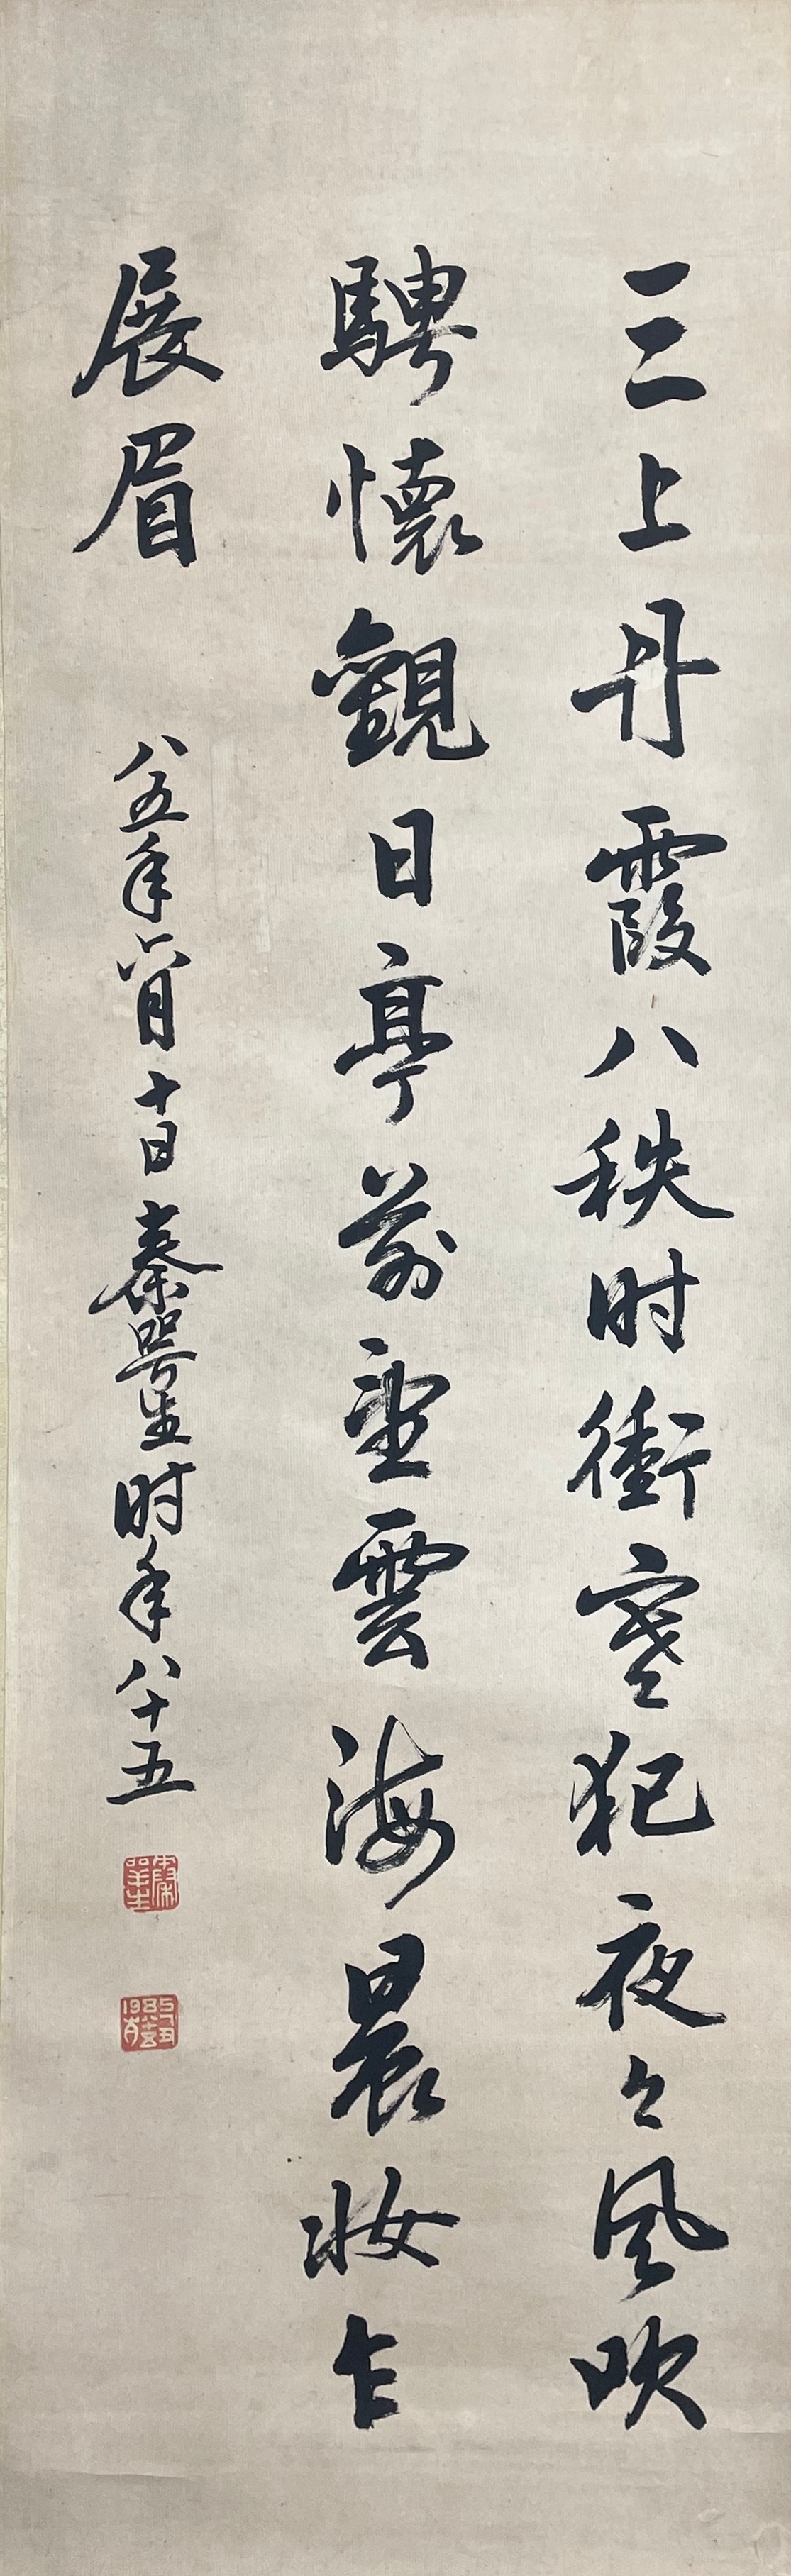 三上丹霞八秩时衝寒犯夜々風吹
騁懷觀日亭前望雲海晨妝乍
展眉
八五年六月十日秦咢生时年八十五
秦咢生
1985